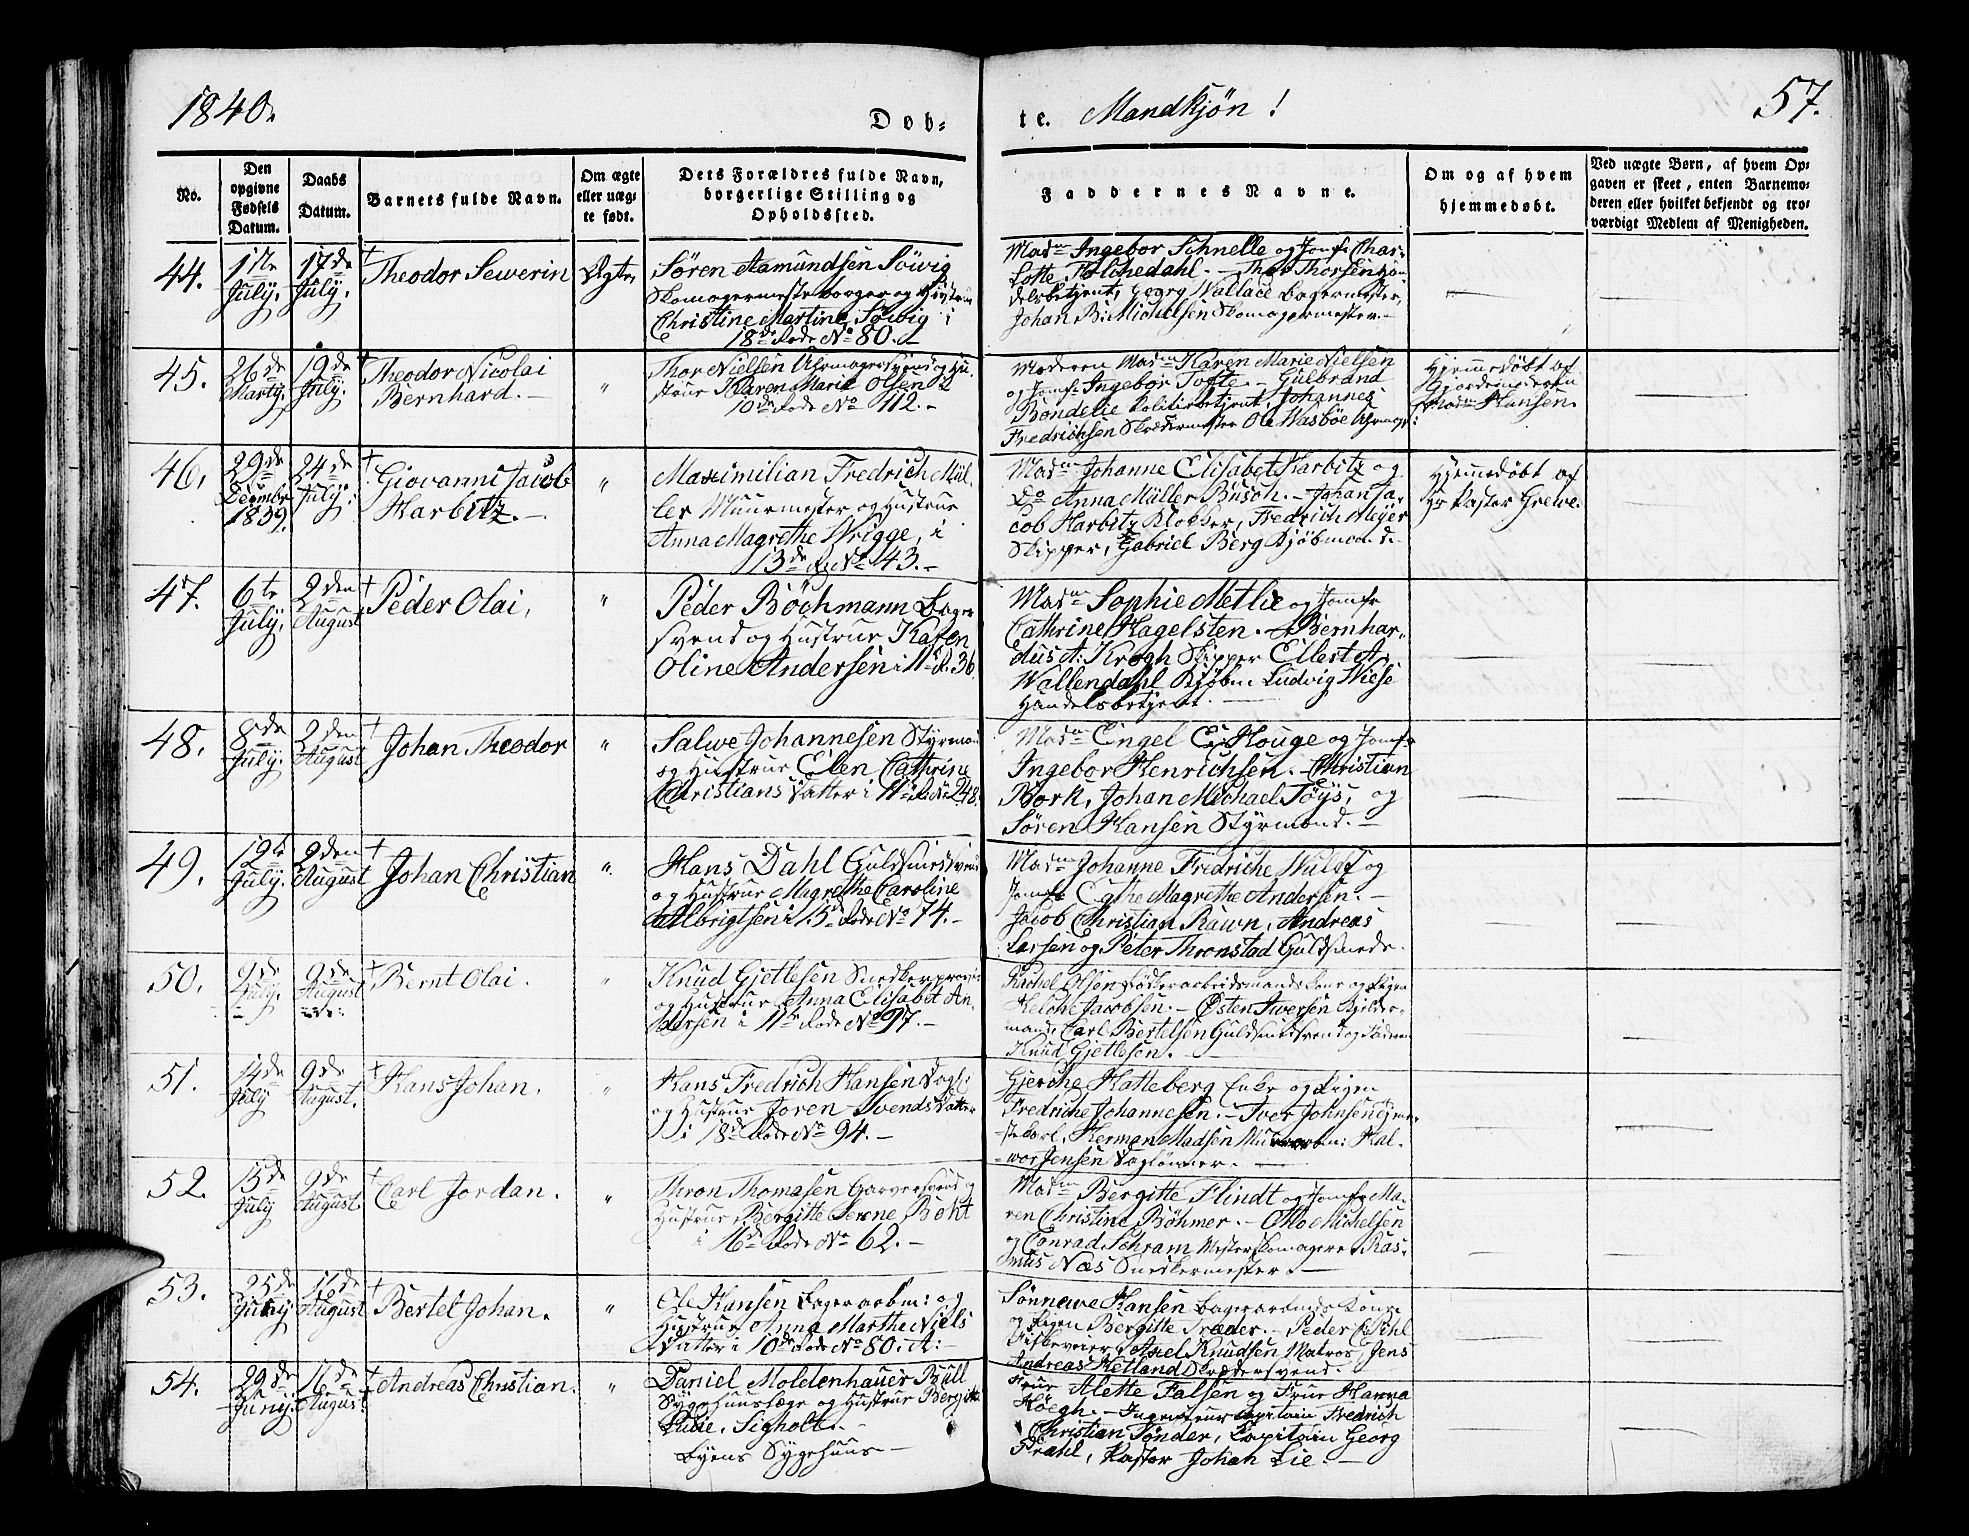 1840.
Døb-
te. Mandkjøn!
57.
No.
Den opgivne Fødsels Datum.
Daabs Datum.
Barnets fulde Navn.
Om ægte eller uægte født.
Dets Forældres fulde Navn, borgerlige Stilling og Opholdssted.
Faddernes Navne.
Om og af hvem hjemmedøbt.
Ved uægte Børn, af hvem Op-
gaven er skeet, enten Barnemo-
deren eller hvilket bekjendt og tro-
værdigt Medlem af Menigheden.
44. 1ste July. 17de July. Theodor Sewerin Ægte,
Søren Aamundsen Söwig
Skomagermester borger og Hustru
Christine Martine Söwig i
18de Rode No 80.
Madm Ingebor Schnelle og Jomf. Char-
lotte Thor Thorsen
Georg Wallace Bagermester,
Johan B. Michelsen Skomagermester.
45. 26de Marty. 19de July. Theodor Nicolai
Bernhard. "
Thor Nielsen Uhrmagersvend og Hu-
strue Karen Marie Olsen i
10de Rode No 112.
Moderen Madm Karen Marie Nielsen
og Jomf. Ingebor Tofte. Gulbrand
Bondelie Politiebetjent, Johannes
Fredrichsen Skrædermester Ole Wasböe
Hjemmedøbt af
Gjordemoderen
Madm Hansen.
46. 29de Decembr 1839. 24de July. Giovanni Jacob
Harbitz. "
Maximilian Fredrich Mül-
ler Muurmester og Hustrue
Anna Magrethe Wrigge, i
13de R. No 43.
Madm Johanne Elisabet Harbitz og
Do Anna Müller Busch. Johan Ja-
cob Harbitz Klokker, Fredrich Meyer
Skipper, Gabriel Berg Kjøbmand.
Hjemmedøbt af
Hr Pastor Grewe.
47. 6te July. 2den August Peder Olai, "
Peder Böchmann Bager
svend og Hustrue Karen
Oline Andersen i 11te R. 36.
Madm Sophie Metlie og Jomfr
Cathrine Hagelsten. Bernhar-
dus A. Krogh Skipper Ellert A.
Wallendahl Kjøbm Ludvig Wiese
Handelsbetjent.
48. 8de July. 2den August Johan Theodor "
Salwe Johannesen Styrmand
og Hustrue Elen Cathrine
Christians Datter i 11te Rode 248.
Madm Engel Houge og Jomfr
Ingebor Henrichsen. Christian
Bork, Johan Michael Töys, og
Søren Hansen Styrmænd.
49. 12te July. 2den August Johan Christian "
Hans Dahl Guldsmedsvend
og Hustrue Magrethe Caroline
Albrigtsen i 15de Rode No 74.
Madm Johanne Fredriche Wulff og
Jomfr Magrethe Andersen.
Jacob Christian Rawn, Andreas
Larsen og Peter Thronstad Guldsmede.
50. 2de July. 9de August Bernt Olai. "
Knud Gjetlesen
og Hustrue Anna Elisabet An-
dersen i 11te Rode No 97.
Rachel Olsen Kone og Pigen
Helche Jacobsen. Østen Iwersen Skilder-
mand, Carl Bertelsen Guldsmedsvend og Faderen
Knud Gjetlesen.
51. 14de July 9de August. Hans Johan. "
Hans Fredrich Hansen Dagl:
og Hustrue Joren Svends Datter
i 18de Rode No 94.
Gjerche Hatteberg Enke og Pigen
Fredriche Johannesen. Iver Johnsen
Herman Madsen Muurarbm: Hal-
wor Jensen Daglønner.
52. 15de July 9de August. Carl Jordan. "
Thron Thomasen Garversvend og
Hustrue Bergitte Serene Boht
i 16de Rode No 62.
Madm Bergitte Flindt og Jomfr Ma-
ren Christine Böhmer. Otto Michelsen
og Conrad Schram Mesterskomagere Ras-
mus Næs Snedkermester.
53. 25de Juny 16de August Bertel Johan. "
Ole Hansen Bagerarbm: og
Hustrue Anna Marthe Niels
Datter i 10de Rode No 80. A:
Sönnewe Hansen Bagerarbeids Kone
og Pigen Bergitte Træder. Peder Pihl
Fiskeveier Axel Knudsen Matros, Jens
Andreas Ketland Skrædersvend.
54. 29de Juny. 16de August. Andreas Christian. "
Daniel Moldenhauer Büll
Sygehuuslæge og Hustrue Bergitte
Lucie. Sigholt.
Byens Sygehuus
Frue Alette Falsen og Frue Hanna
Høegh. Ingenieur Capitain Fredrich
Christian Tönder, Capitain Georg
Prahl, Pastor Johan Lie.